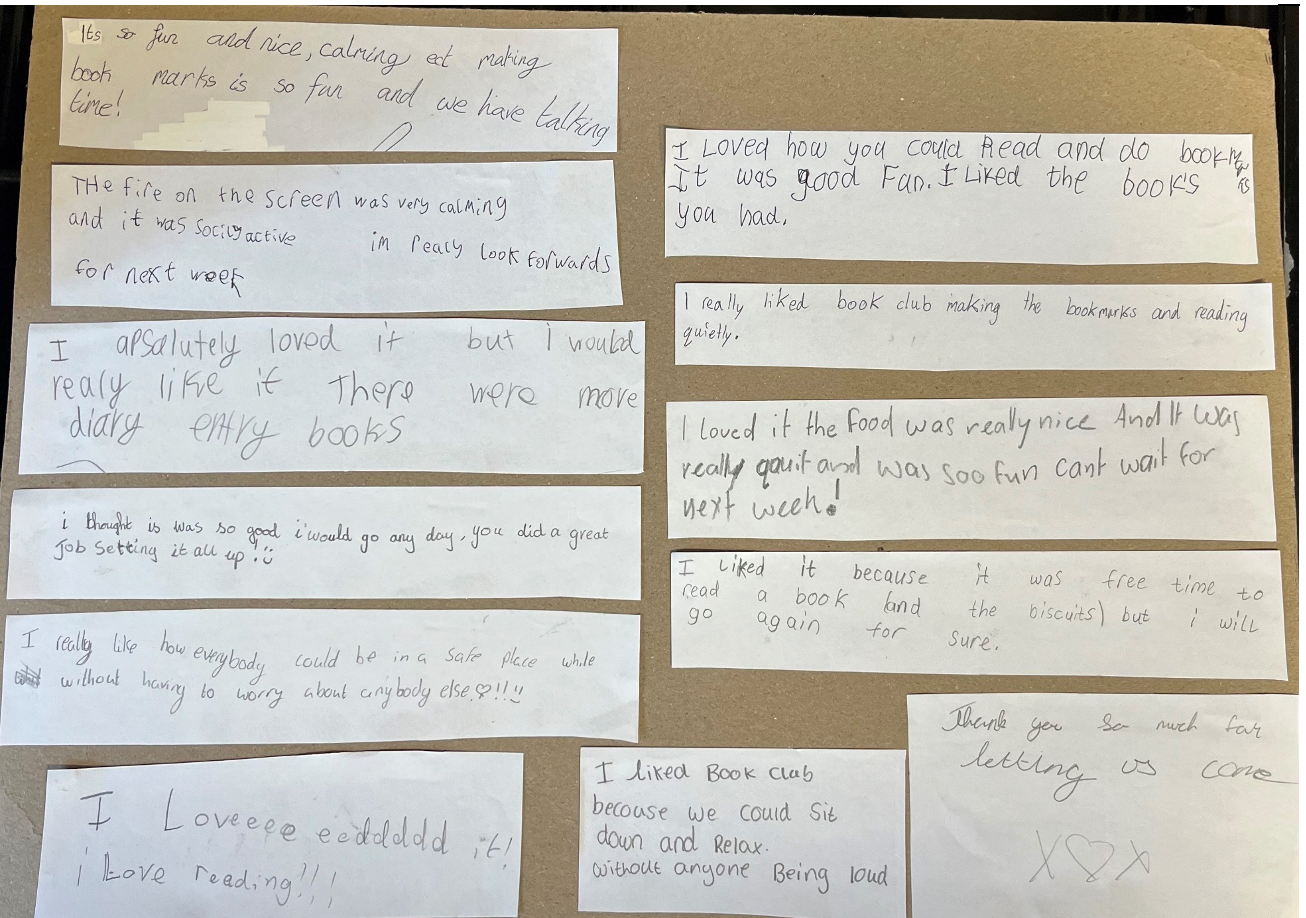 Its so fun and nice, calming ect making
book marks is so fun and we have talking
time!
THe fire on the screen was very calming
and it was socilyactive im realy look forwards
for next week
I apsalutely loved it but i would
realy like it There were more
diary entry books
i thought is was so good i would go any day, you did a great
Job setting it all up! :)
I really like how everybody could be in a safe place while
without having to worry about anybody else ♡!!:)
I Loveeee eeddddd it!
i Love reading!!!
I Loved how you could Read and do bookmarks
It was good Fun. I Liked the book's
you had.
I really liked book club making the bookmarks and reading
quietly.
I loved it the Food was really nice And It was
really qauit and was soo fun Cant wait for
next week!
I liked it because it was free time to
read a book (and the biscuits) but i will
go again for sure.
I liked Book club
becouse we could Sit
down and Relax.
without anyone Being loud
Thank you so much for
letting us come
X♡X